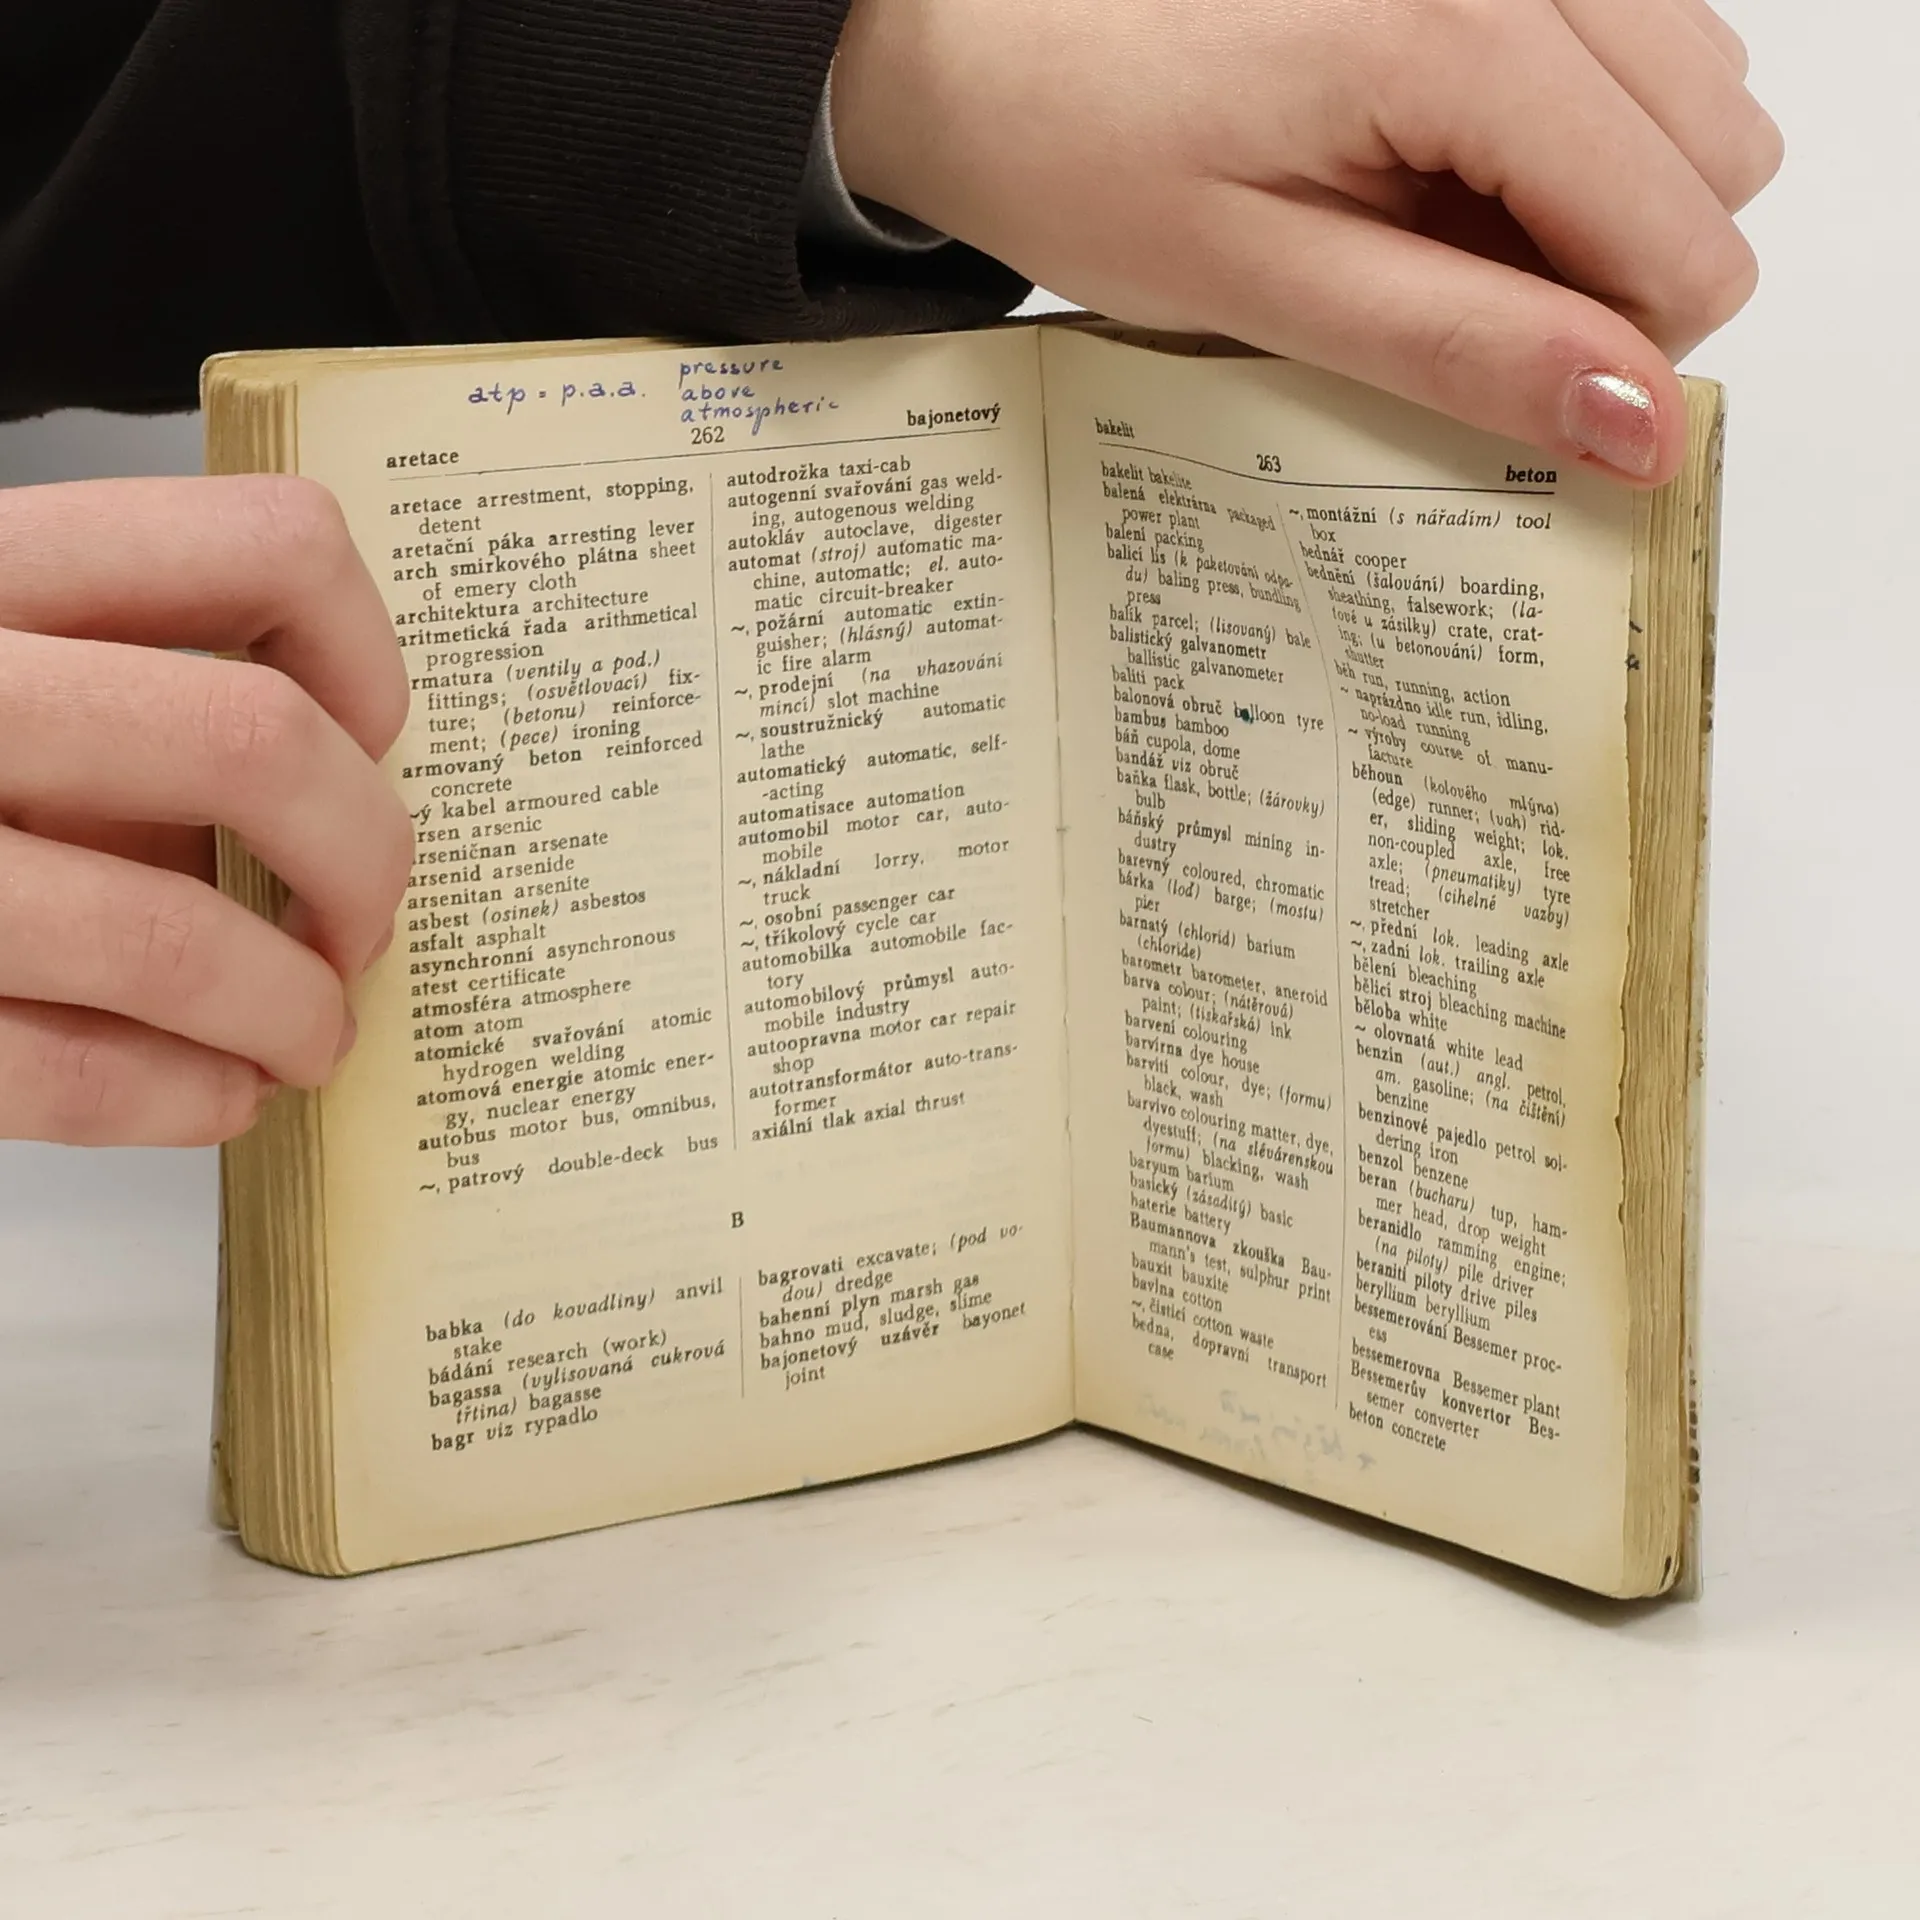 atp = p.a.a. pressure
above
atmospheric
aretace 262 bajonetový
aretace arrestment, stopping,
detent
aretační páka arresting lever
arch smirkového plátna sheet
of emery cloth
architektura architecture
aritmetická řada arithmetical
progression
rmatura (ventily a pod.)
fittings; (osvětlovací) fix-
ture; (betonu) reinforce-
ment; (pece) ironing
armovaný beton reinforced
concrete
~ý kabel armoured cable
rsen arsenic
rseničnan arsenate
arsenid arsenide
arsenitan arsenite
asbest (osinek) asbestos
asfalt asphalt
asynchronní asynchronous
atest certificate
atmosféra atmosphere
atom atom
atomické svařování atomic
hydrogen welding
atomová energie atomic ener-
gy, nuclear energy
autobus motor bus, omnibus,
bus
~, patrový double-deck bus
autodrožka taxi-cab
autogenní svařování gas weld-
ing, autogenous welding
autokláv autoclave, digester
automat (stroj) automatic ma-
chine, automatic; el. auto-
matic circuit-breaker
~, požární automatic extin-
guisher; (hlásný) automat-
ic fire alarm
~, prodejní (na vhazování
mincí) slot machine
~, soustružnický automatic
lathe
automatický automatic, self-
-acting
automatisace automation
automobil motor car, auto-
mobile
~, nákladní lorry, motor
truck
~, osobní passenger car
~, tříkolový cycle car
automobilka automobile fac-
tory
automobilový průmysl auto-
mobile industry
autoopravna motor car repair
shop
autotransformátor auto-trans-
former
axiální tlak axial thrust
B
babka (do kovadliny) anvil
stake
bádání research (work)
bagassa (vylisovaná cukrová
třtina) bagasse
bagr viz rypadlo
bagrovati excavate; (pod vo-
dou) dredge
bahenní plyn marsh gas
bahno mud, sludge, slime
bajonetový uzávěr bayonet
joint
bakelit 263 beton
bakelit bakelite
balená elektrárna packaged
power plant
balení packing
balicí lis (k paketování odpa-
du) baling press, bundling
press
balík parcel; (lisovaný) bale
balistický galvanometr
ballistic galvanometer
baliti pack
balonová obruč balloon tyre
bambus bamboo
báň cupola, dome
bandáž viz obruč
baňka flask, bottle; (žárovky)
bulb
báňský průmysl mining in-
dustry
barevný coloured, chromatic
bárka (loď) barge; (mostu)
pier
barnatý (chlorid) barium
(chloride)
barometr barometer, aneroid
barva colour; (nátěrová)
paint; (tiskařská) ink
barvení colouring
barvírna dye house
barviti colour, dye; (formu)
black, wash
barvivo colouring matter, dye,
dyestuff; (na slévárenskou
formu) blacking, wash
baryum barium
basický (zásaditý) basic
baterie battery
Baumannova zkouška Bau-
mann's test, sulphur print
bauxit bauxite
bavlna cotton
~, čisticí cotton waste
bedna, dopravní transport
case
~, montážní (s nářadím) tool
box
bednář cooper
bednění (šalování) boarding,
sheathing, falsework; (la-
ťové u zásilky) crate, crat-
ing; (u betonování) form,
shutter
běh run, running, action
~ naprázdno idle run, idling,
no-load running
~ výroby course of manu-
facture
běhoun (kolového mlýna)
(edge) runner; (vah) rid-
er, sliding weight; lok.
non-coupled axle, free
axle; (pneumatiky) tyre
tread; (cihelné vazby)
stretcher
~, přední lok. leading axle
~, zadní lok. trailing axle
bělení bleaching
bělicí stroj bleaching machine
běloba white
~ olovnatá white lead
benzin (aut.) angl. petrol,
am. gasoline; (na čištění)
benzine
benzinové pajedlo petrol sol-
dering iron
benzol benzene
beran (bucharu) tup, ham-
mer head, drop weight
beranidlo ramming engine;
(na piloty) pile driver
beraniti piloty drive piles
beryllium beryllium
bessemerování Bessemer proc-
ess
bessemerovna Bessemer plant
Bessemerův konvertor Bes-
semer converter
beton concrete